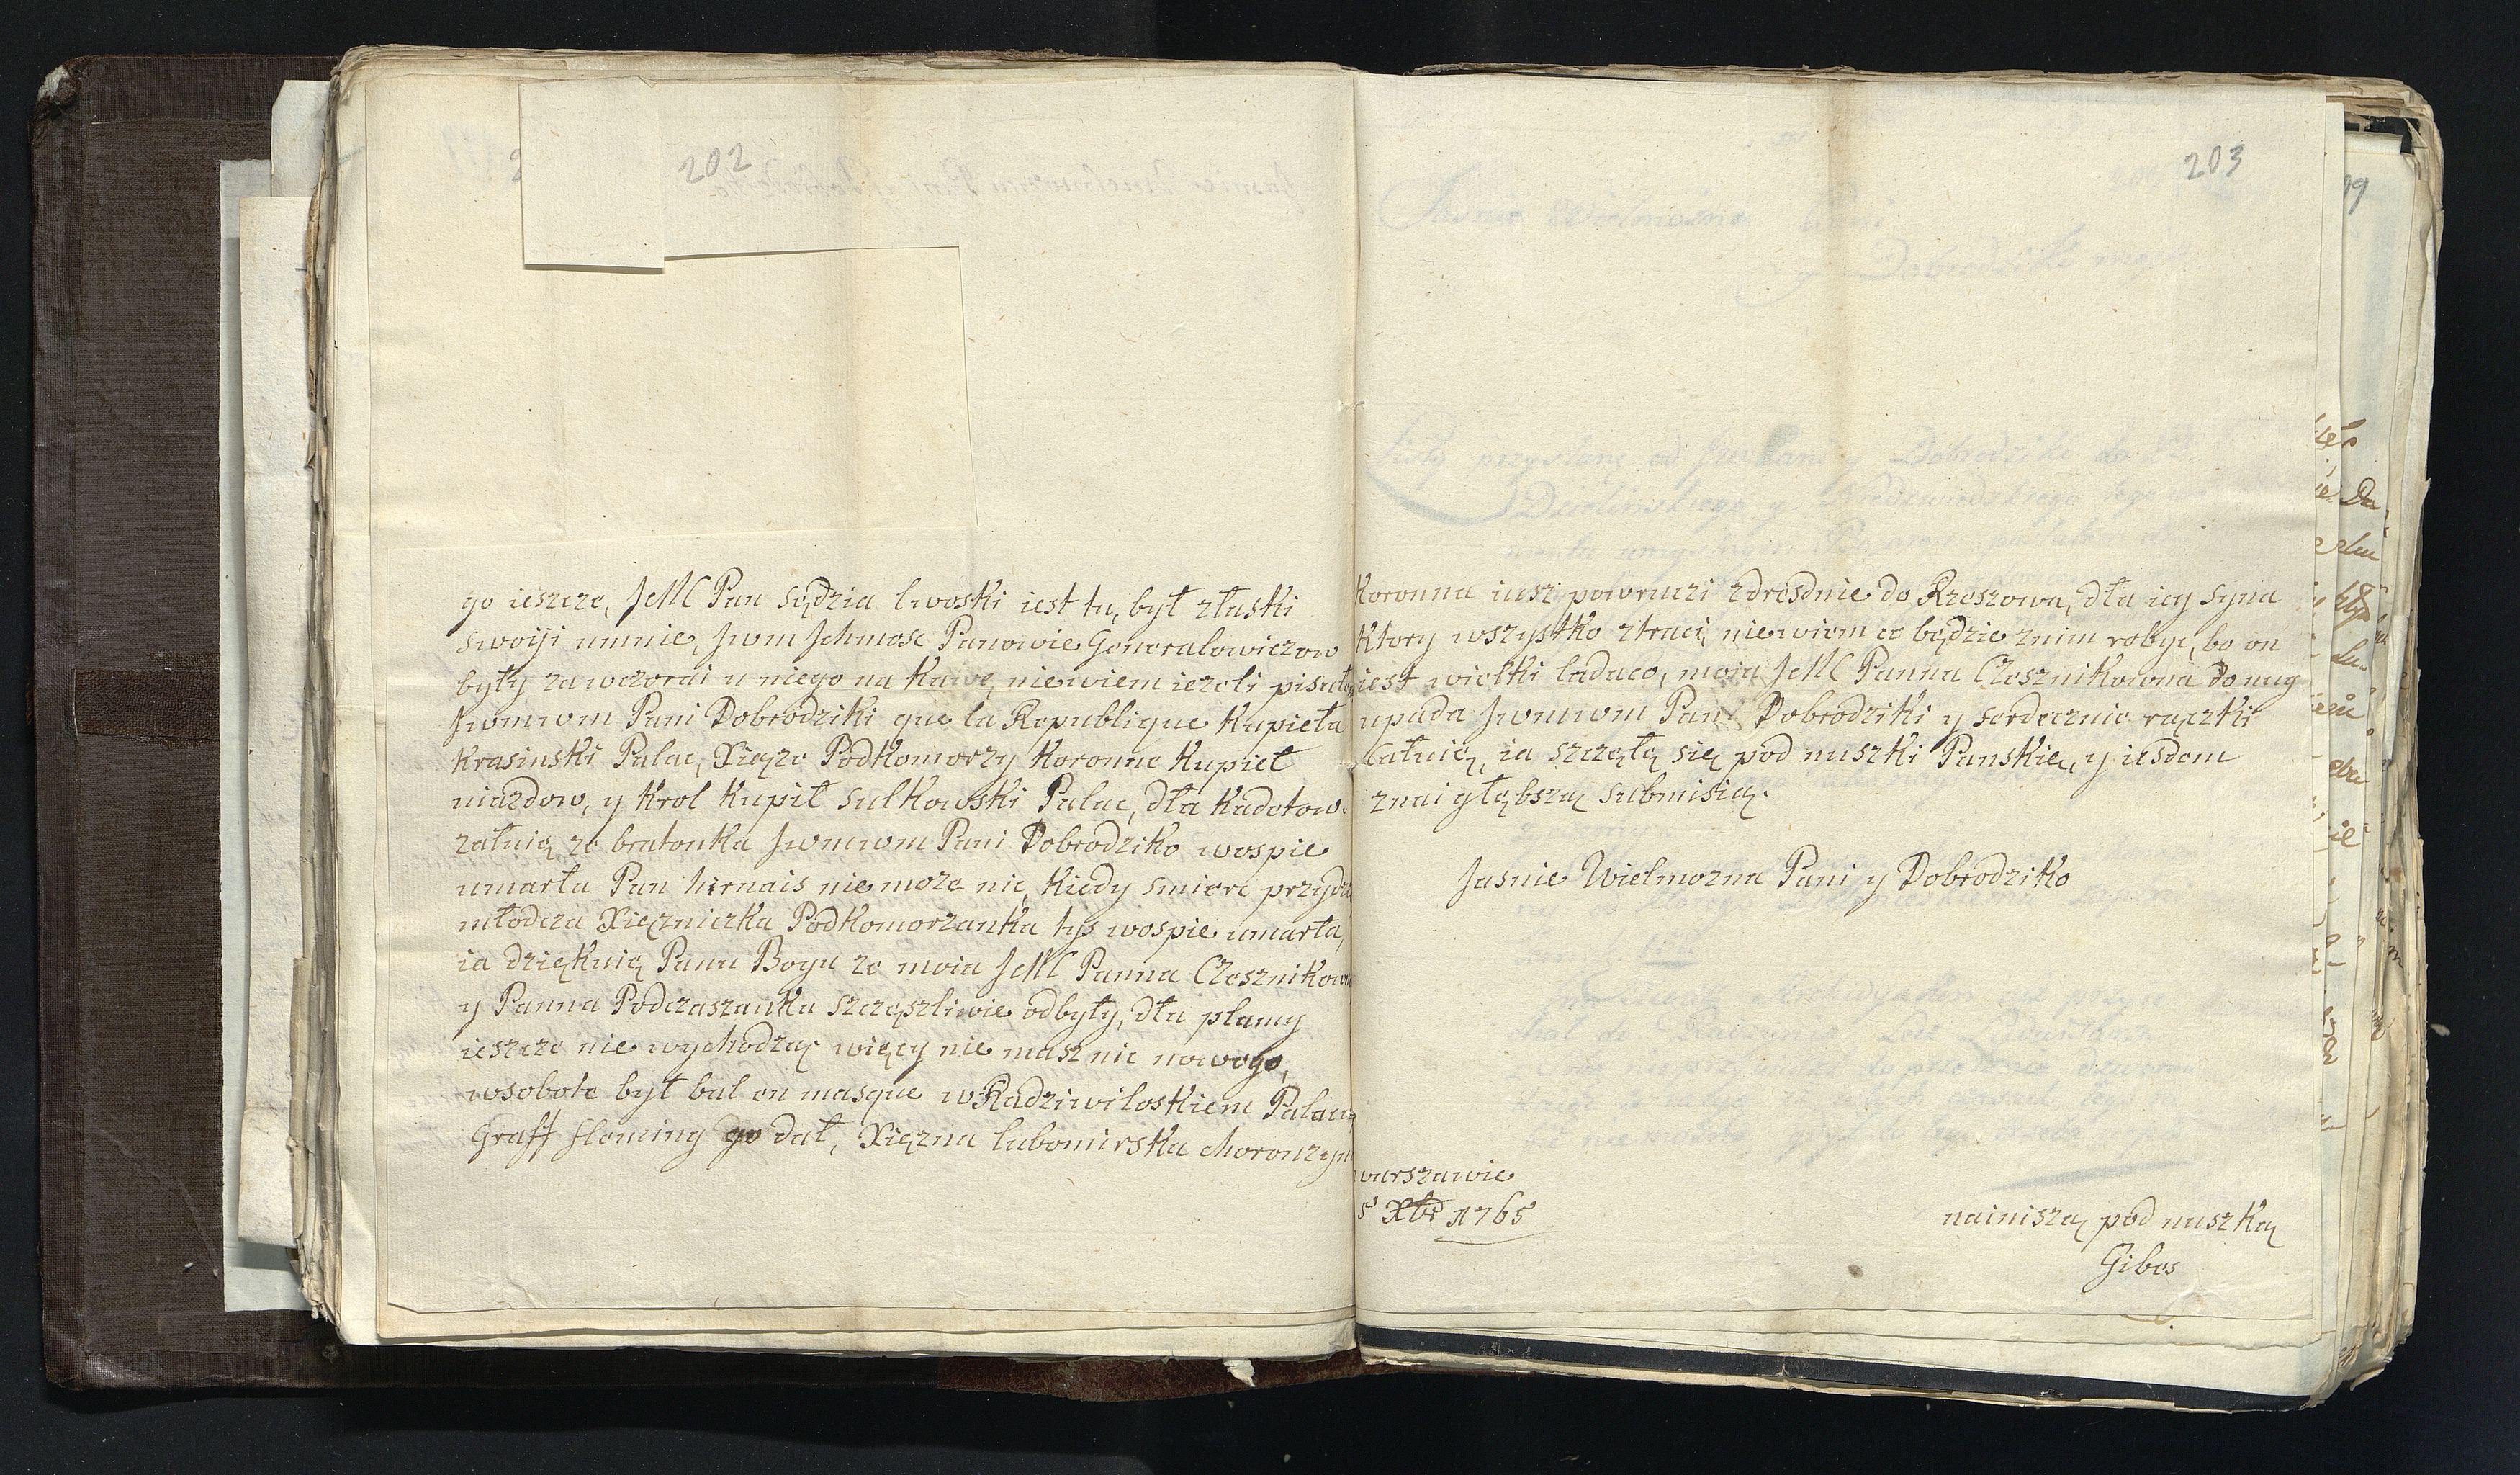 202
go ieszcze, JeMC Pan Sędzia lwoski iest tu, był złaski
swoiji umnie, Jwm Jchmosc Panowie Generalowiczow
były zawczorai u niego na Kawe, niewiem iezeli pisałe
Jwmwm Pani Dobrodziki que la Republique Kupieła
Krasinski Palac, Xięże Podkomorzy Koronne Kupieł
uiazdow, y Krol Kupił Sulkowski Palac, dła Kadetow.
załuię ze bratonka Jwmwm Pani Dobrodziko wospie
umarła Pan hirnais nie może nic, Kiedy smierc przydzie
młodcza Xiężniczka Podkomorzanka tys wospie umarła,
ia dziękuię Panu Bogu ze moia JeMC Panna Czesznikowna
y Panna Podczaszanka szczęszliwie odbyły, dła plamy
ieszcze nie wychodzą więcy nie masz nic nowego,
wsobote był bal en masque w Radziwiłoskiem Palacu
Graff fleming go dał, Xiężna lubomirska choronzyn
203
Koronna iusz powruczi zdresdnie do Rzeszowa, dła icy Syna
Ktory wszystko ztraci, niewiem co będzie znim robyc, bo on
iest wielki ladaco, moia JeMC Panna Czesznikowna Do nug
upada Jwmwm Pani Dobrodziki y serdecznie rączki
Całuię, ia szczęłę się pod nuszki Panskie, y iesdem
znaigłębszą Submisią.
Jasnie Wielmozna Pani y Dobrodziko
warszawie
5 Xbr 1765
nainiszą pod nuszką
Gibes